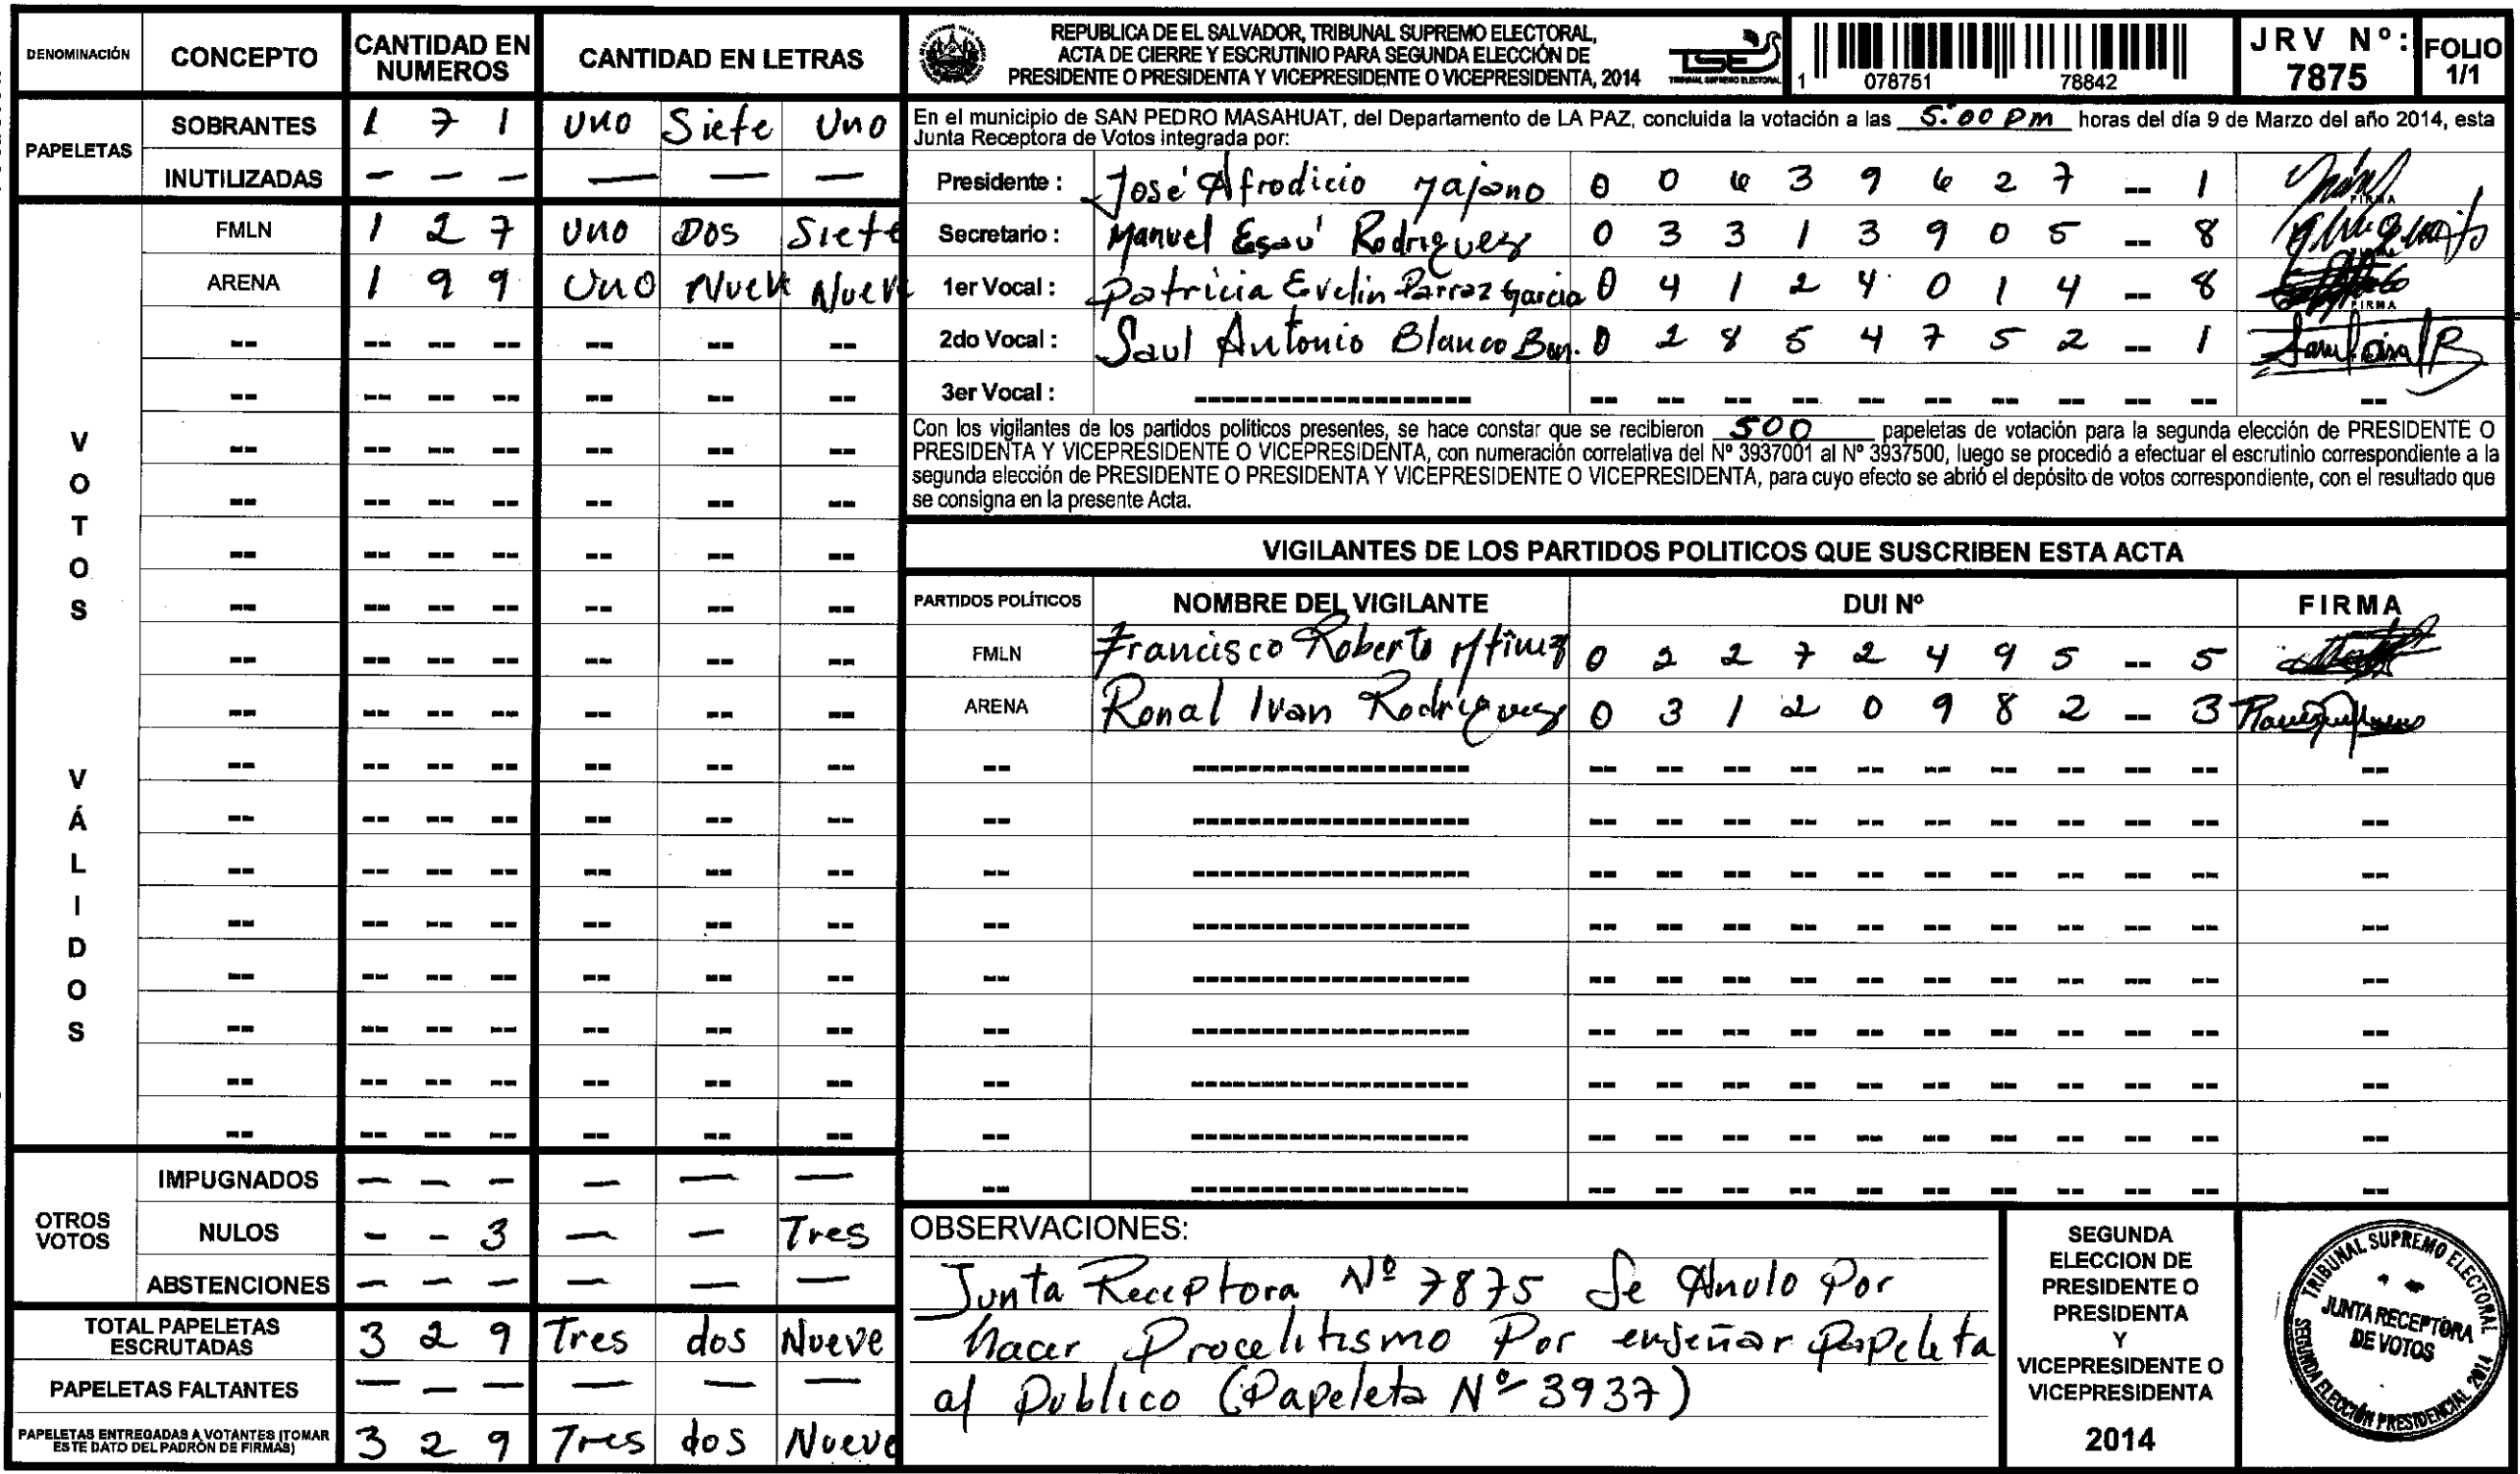 DENOMINACIÓN CONCEPTO CANTIDAD EN NUMEROS CANTIDAD EN LETRAS
PAPELETAS
SOBRANTES 1 7 1 uno Siete Uno
INUTILIZADAS — — — — — —
VOTOS VÁLIDOS
FMLN 1 2 7 uno DOS Siete
ARENA 1 9 9 Uno Nueve Nueve
OTROS VOTOS
IMPUGNADOS — — — — — —
NULOS - - 3 — — Tres
ABSTENCIONES — — — — — —
TOTAL PAPELETAS ESCRUTADAS 3 2 9 Tres dos Nueve
PAPELETAS FALTANTES — — — — — —
PAPELETAS ENTREGADAS A VOTANTES (TOMAR ESTE DATO DEL PADRÓN DE FIRMAS) 3 2 9 Tres dos Nueve
REPUBLICA DE EL SALVADOR, TRIBUNAL SUPREMO ELECTORAL,
ACTA DE CIERRE Y ESCRUTINIO PARA SEGUNDA ELECCIÓN DE
PRESIDENTE O PRESIDENTA Y VICEPRESIDENTE O VICEPRESIDENTA, 2014
TSE
TRIBUNAL SUPREMO ELECTORAL
1 078751 78842
JRV Nº: 7875
FOLIO 1/1
En el municipio de SAN PEDRO MASAHUAT, del Departamento de LA PAZ, concluida la votación a las 5:00 pm horas del día 9 de Marzo del año 2014, esta
Junta Receptora de Votos integrada por:
Presidente : José Afrodicio Majano 0 0 6 3 9 6 2 7 -- 1
Secretario : Manuel Esaú Rodriguez 0 3 3 1 3 9 0 5 -- 8
1er Vocal : Patricia Evelin Parraz Garcia 0 4 1 2 4 0 1 4 -- 8
2do Vocal : Saul Antonio Blanco 0 2 8 5 4 7 5 2 -- 1
3er Vocal :
FIRMA
Con los vigilantes de los partidos politicos presentes, se hace constar que se recibieron 500 papeletas de votación para la segunda elección de PRESIDENTE O
PRESIDENTA Y VICEPRESIDENTE O VICEPRESIDENTA, con numeración correlativa del Nº 3937001 al Nº 3937500, luego se procedió a efectuar el escrutinio correspondiente a la
segunda elección de PRESIDENTE O PRESIDENTA Y VICEPRESIDENTE O VICEPRESIDENTA, para cuyo efecto se abrió el depósito de votos correspondiente, con el resultado que
se consigna en la presente Acta.
VIGILANTES DE LOS PARTIDOS POLITICOS QUE SUSCRIBEN ESTA ACTA
PARTIDOS POLÍTICOS NOMBRE DEL VIGILANTE DUI Nº FIRMA
FMLN Francisco Roberto 0 2 2 7 2 4 9 5 -- 5
ARENA Ronal Ivan Rodriguez 0 3 1 2 0 9 8 2 -- 3
OBSERVACIONES:
Junta Receptora Nº 7875 Se Anulo Por
hacer Procelitismo Por enseñar papeleta
al Publico (Papeleta Nº 3937)
SEGUNDA
ELECCION DE
PRESIDENTE O
PRESIDENTA
Y
VICEPRESIDENTE O
VICEPRESIDENTA
2014
TRIBUNAL SUPREMO ELECTORAL
JUNTA RECEPTORA
DE VOTOS
SEGUNDA ELECCIÓN PRESIDENCIAL 2014